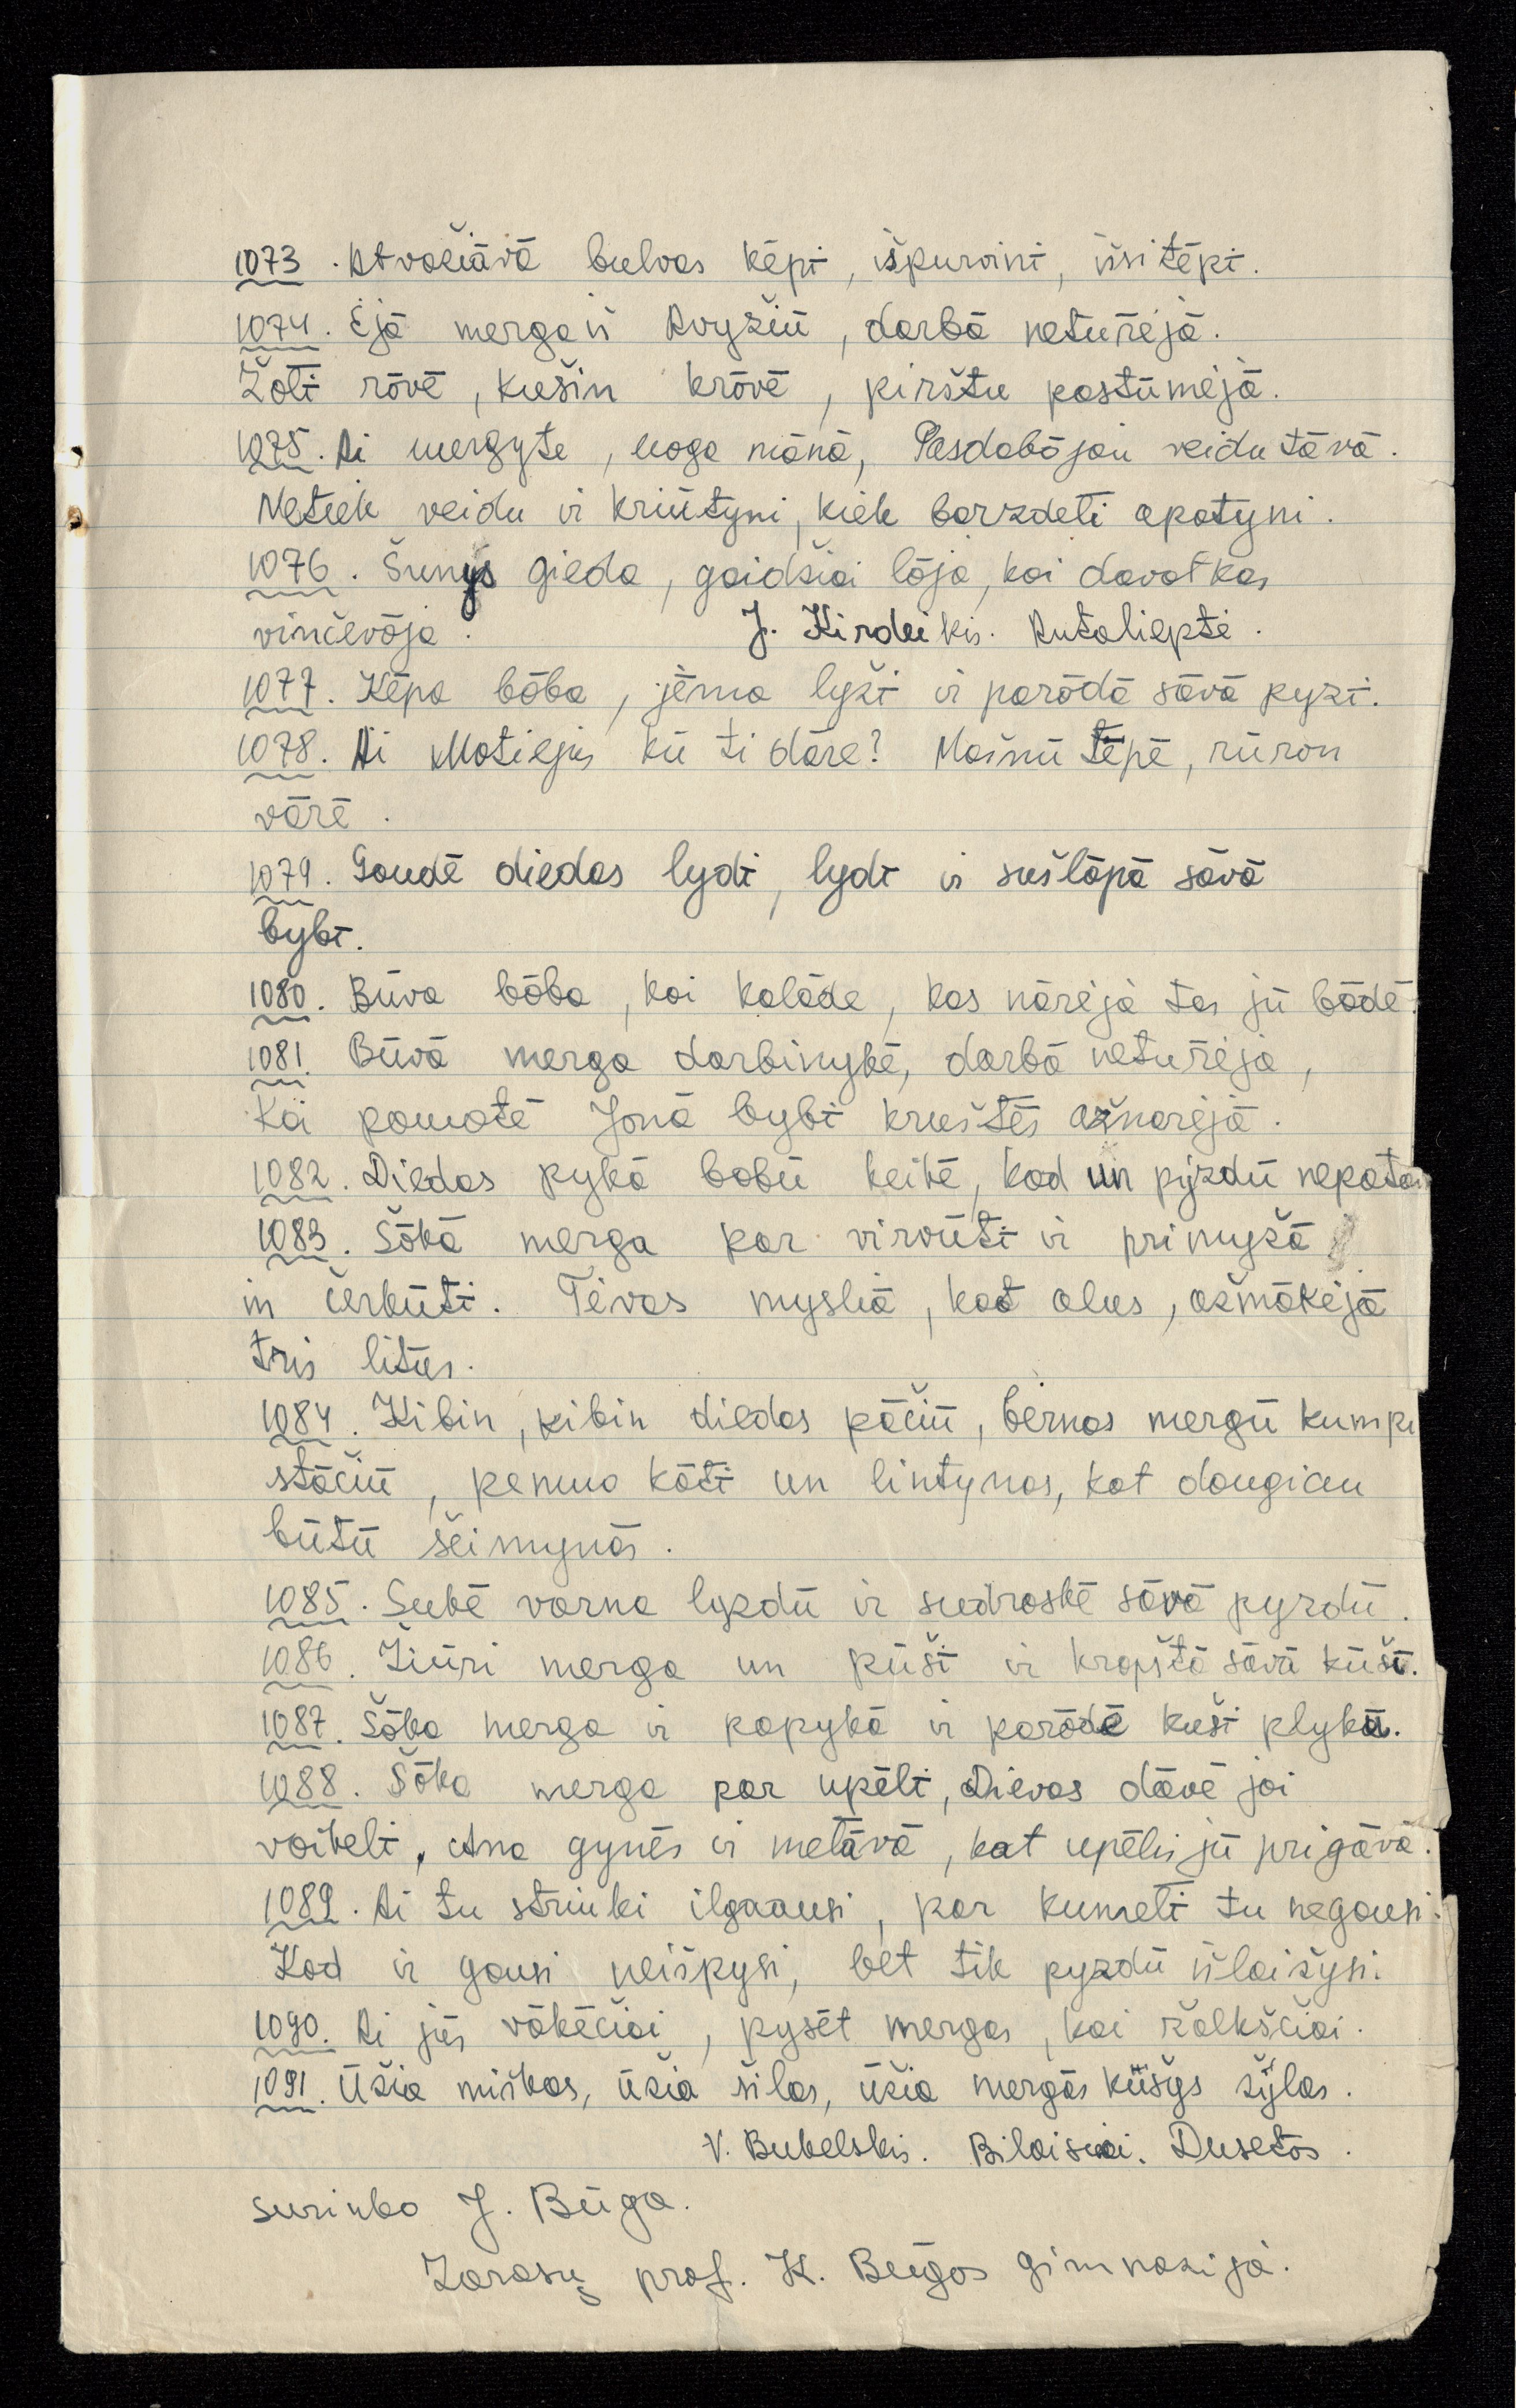 1073. Atvačiāvā bulvas kēpt, išpurvint, ūsitēpt.
1074. Ējā merga iš Avyžiū, darbā neturējā.
Žoti rōvē, kušin krōvē, pirštu pastūmējā.
1075. Ai mergyte, uoga mānā, Pasdabōjau veidu tāvā.
Netiek veidu ir krūtyni, kiek barzdeti apatyni.
1076. Šunys gieda, gaidžiai lōja, kai davatkas
vinčevōja. J. Kirdeikis. Antaliepte.
1077. Kēpa bōba, jēma lyžt ir parōdā sāvā pyzt.
1078. Ai Motiejus kū ti dāre? Mašnū tēpē, rūron
vārē.
1079. Gaudē diedas lydi, lydi ir sušlāpā sāvā
bybt.
1080. Būva bōba, kai kalāde, kas nārējā tas jū bādē.
1081. Būvā merga darbinykē, darbā neturēja,
Kai pamatē Jonā bybt kruštēs ažnarējā.
1082. Diedas pykā bobū keikē, kad un pyzdū nepatai
1083. Šōkā merga par virvūti ir primyžā
in čerkūti. Tēvas mysliā, kat alus, ažmākējā
tris litus.
1084. Kibin, pibin diedas pāčiū, bernas mergū kumpi
stāčiū, penuo kāti un lintynas, kat daugiau
būtū šeimynās.
1085. Sukē varna lyzdū ir sudraskē sāvā pyzdū.
1086. Žiūri merga un pūši ir krapštā sāvā kūši.
1087. Šōka merga ir papykā ir parōdē kuši plykū.
1088. Šōka merga par upēli, Dievas dāvē jai
vaikeli, Ana gynēs ir metāvā, kat upēlis jū prigāvā.
1089. Ai tu striuki ilgaausi, par kumeti tu negausi.
Kad ir gausi neišpysi, bet tik pyzdū išlaižysi.
1090. Ai jūs vākēčiai, pysēt mergas, kai žālkščiai.
1091. Ūžia miškas, ūžia šilas, ūžia mergās kūšys žylas.
V. Bukelskis. Bilaišiai. Dusetos.
surinko J. Būga.
Zarasų prof. K. Būgos gimnazija.